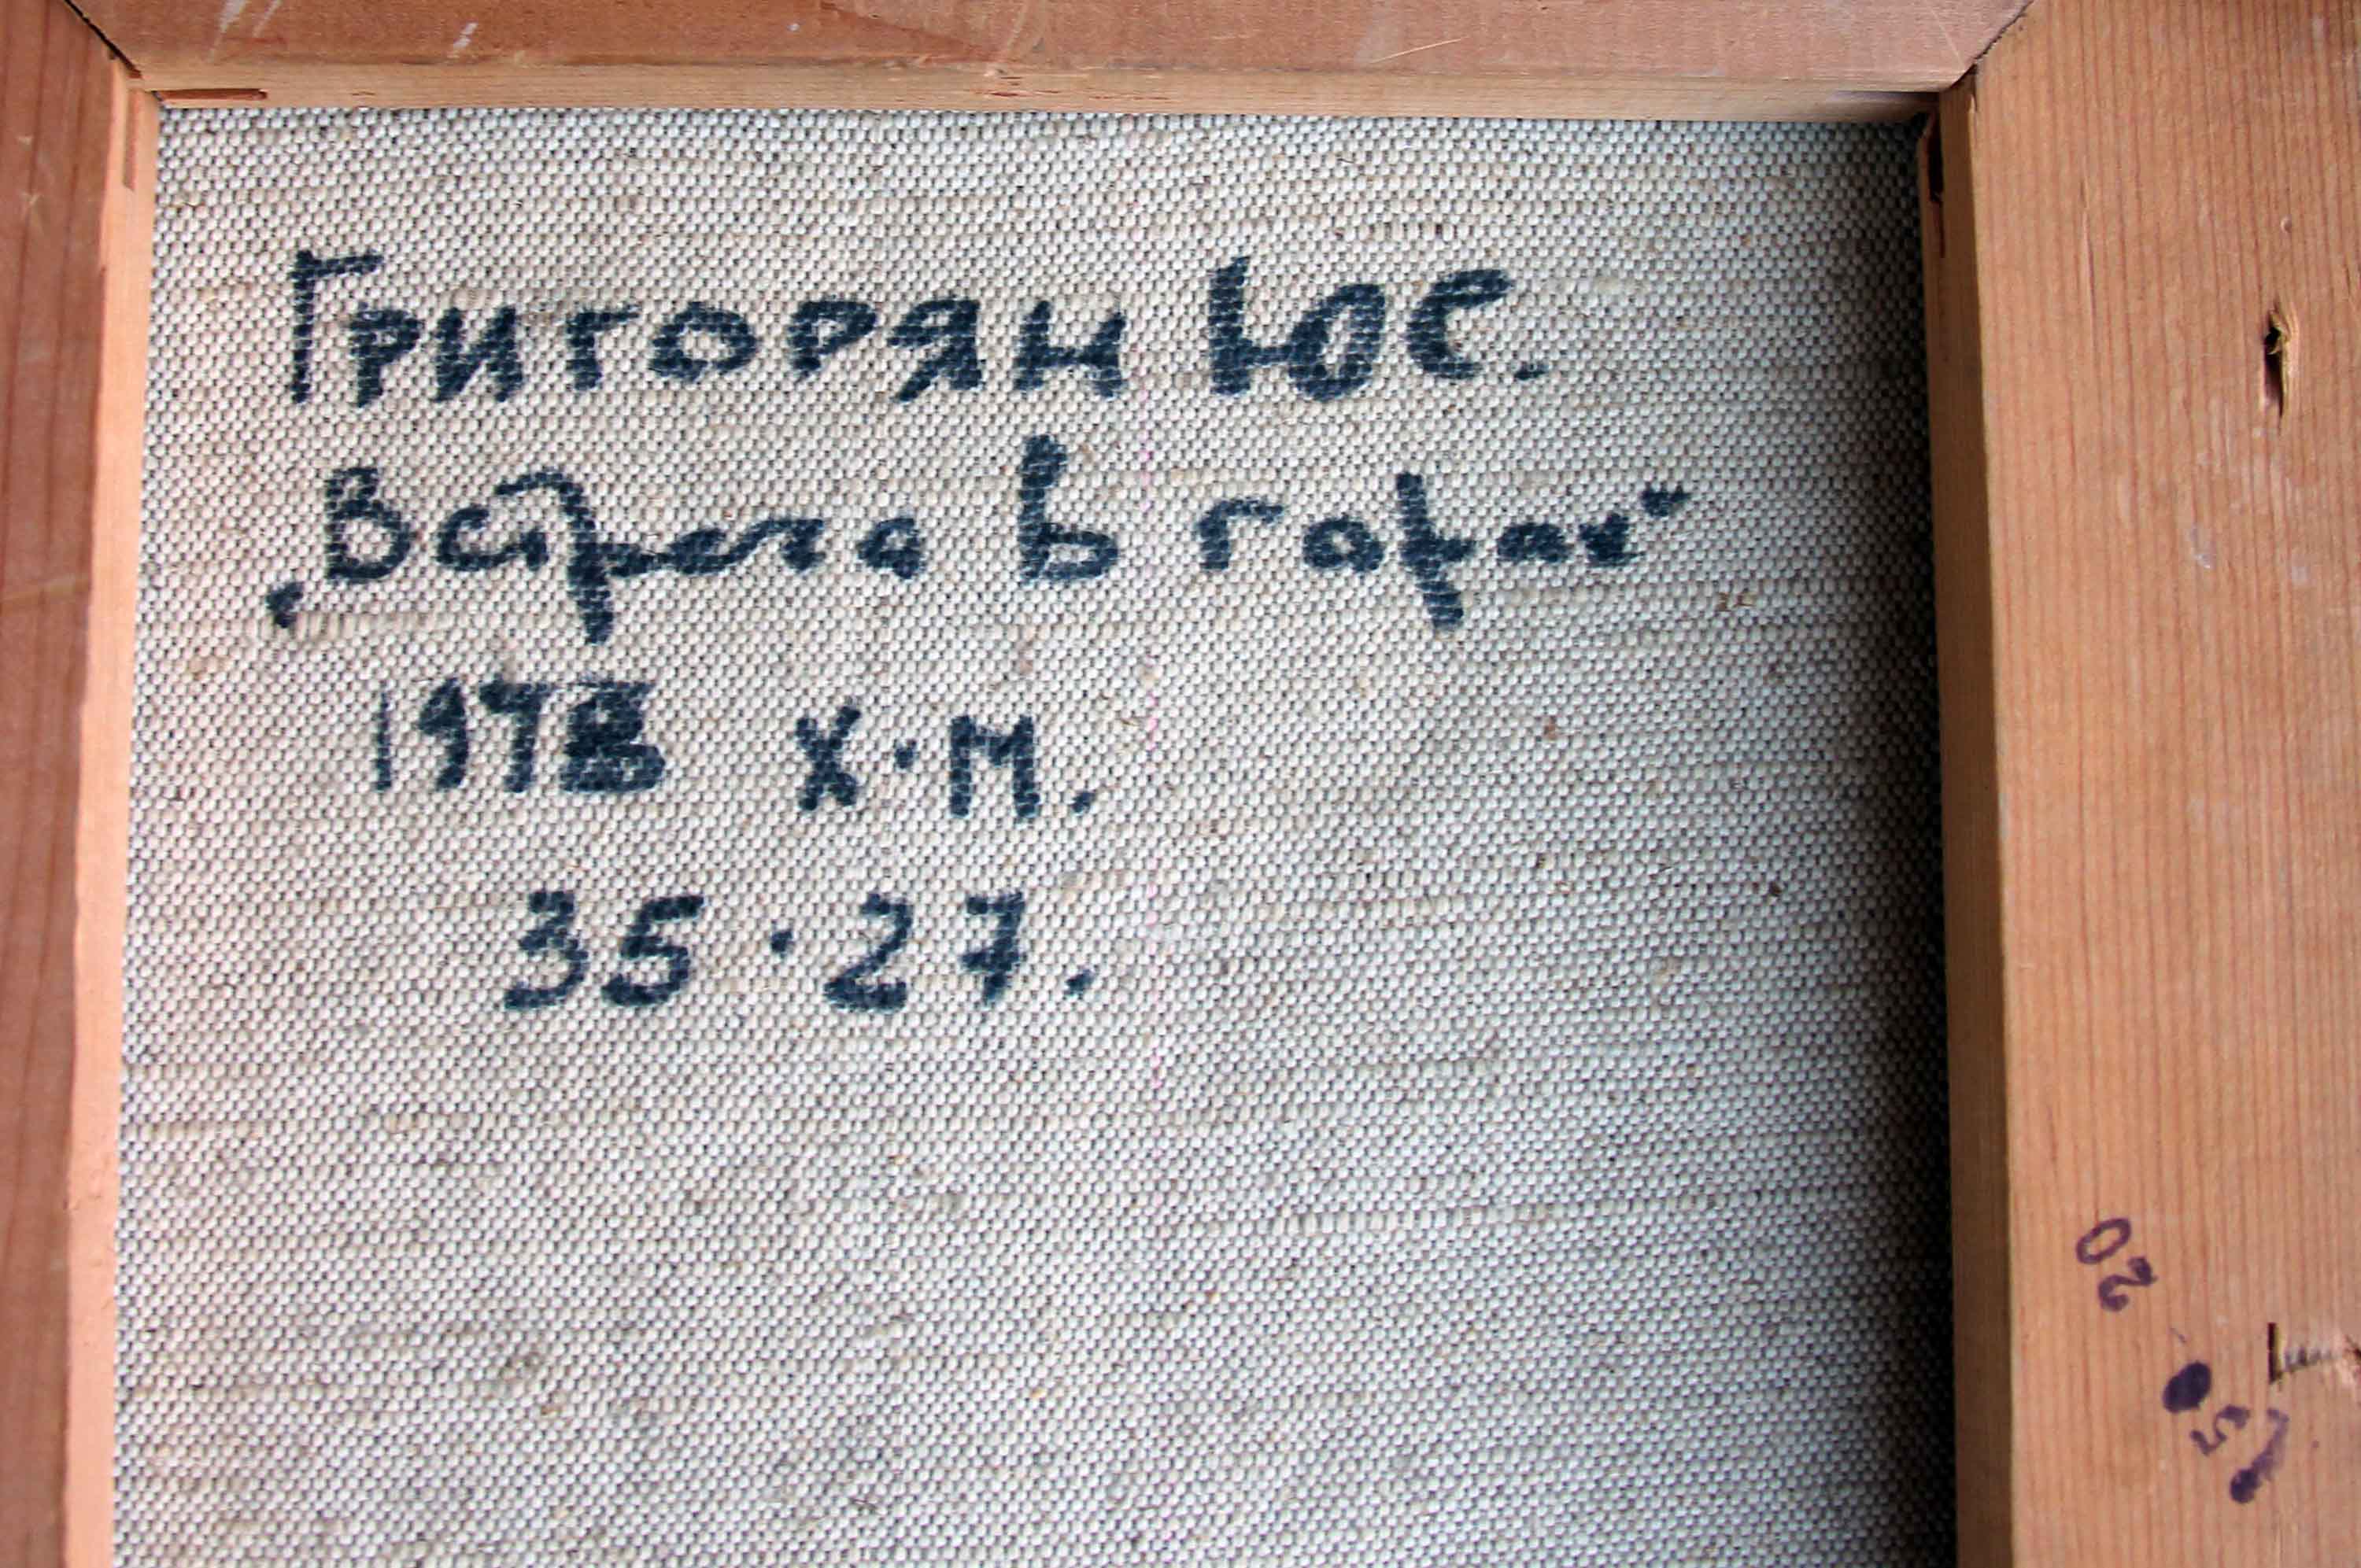 Григорян Ю С.
„Встреча в горах“
1978 Х·М.
35·27.
20